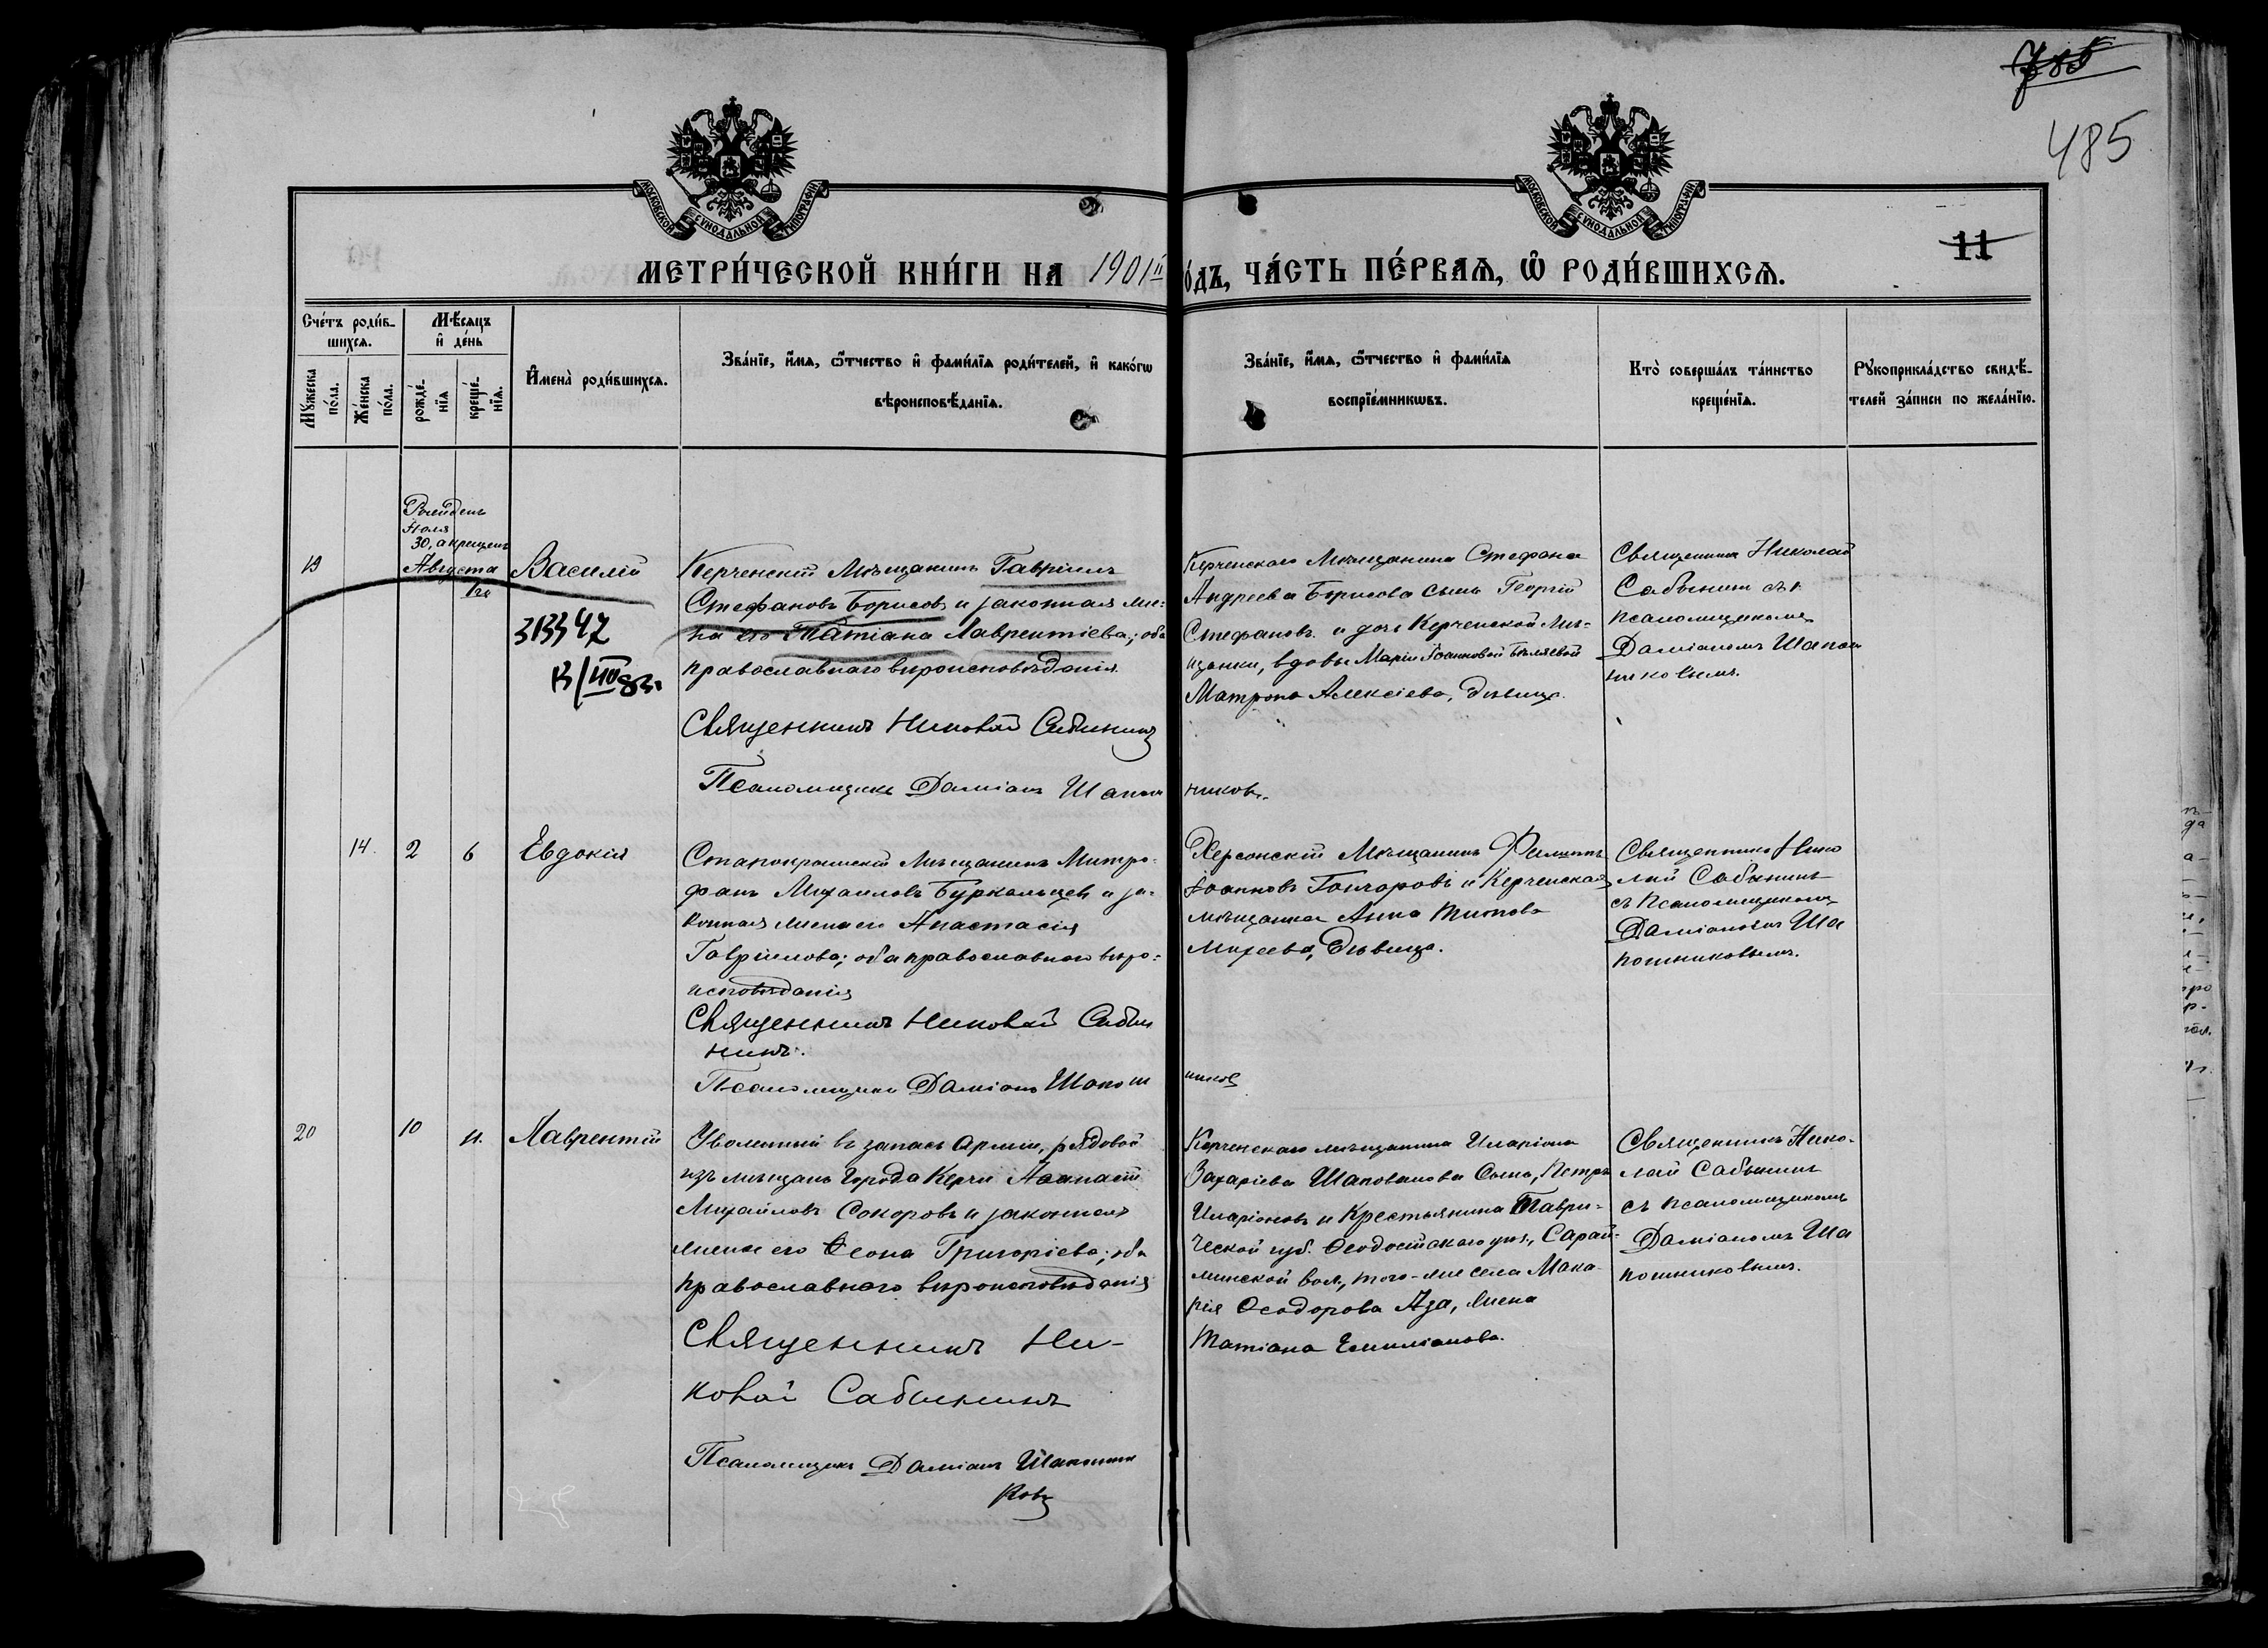 785
485
МОСКОВСКОЙ СѴНОДАЛЬНОЙ ТИПОГРАФІИ
МОСКОВСКОЙ СѴНОДАЛЬНОЙ ТИПОГРАФІИ
11
МЕТРИ́ЧЕСКОЙ КНИ́ГИ НА 1901й
О́ДЪ, ЧА́СТЬ ПЕ́РВАѦ, Ѡ РОДИ́ВШИХСѦ.
Сче́тъ роди́в-
шихсѧ.
Мꙋ́жеска
по́ла.
Же́нска
по́ла.
Мѣ́сѧцъ
и҆ де́нь
рожде́-
нїѧ
креще́-
нїѧ.
И҆мена̀ роди́вшихсѧ.
Зва́нїе, и҆́мѧ, ѻ҆́тчество и҆ фами́лїѧ роди́телей, и҆ како́гѡ
вѣроисповѣ́данїѧ.
Зва́нїе, и҆́мѧ, ѻ҆́тчество и҆ фами́лїѧ
воспрїе́мникѡвъ.
Кто̀ соверша́лъ та́инство
креще́нїѧ.
Рꙋкоприкла́дство свидѣ́-
телей за́писи по жела́нїю.
19
Рожденъ
Іюля
30, а крещенъ
Августа
1го
Василій
313347
Керченскій Мѣщанинъ Гавріилъ
Стефановъ Борисовъ и законная же-
на его Татіана Лаврентіева; оба
православнаго вѣроисповѣданія.
Священникъ Николай Сабининъ
Псаломщикъ Даміанъ Шапош
Керченскаго Мѣщанина Стефана
Андреева Борисова сынъ Георгій
Стефановъ и дочь Керченской Мѣ-
щанки, вдовы Маріи Іоанновой Бѣляевой
Матрона Алексіева, дѣвица.
никовъ.
Священникъ Николай
Сабининъ съ
псаломщикомъ
Даміаномъ Шапош
никовымъ.
14.
2
6
Евдокія
Старокрымскій Мѣщанинъ Митро-
фанъ Михаиловъ Буркальцев и за-
конная жена его Анастасія
Гавріилова; оба православнаго вѣро-
исповѣданія
Священникъ Николай Саби
нинъ.
Псаломщикъ Даміанъ Шапош
Херсонскій Мѣщанинъ Филиппъ
Іоанновъ Гончаровъ и Керченская
мѣщанка Анна Титова
Михеева, дѣвица.
никовъ
Священникъ Нико
лай Сабининъ
съ Псаломщикомъ
Даміаномъ Ша
пошниковымъ.
20
10
11.
Лаврентій
Уволенный въ запасъ Арміи, рядовой
изъ мѣщанъ города Керчи Аѳанасій
Михайловъ Сокоровъ и законная
жена его Ѳеона Григоріева; оба
православнаго вѣроисповѣданія
Священникъ Ни-
колай Сабининъ
Псаломщикъ Даміанъ Шапошни
ковъ
Керченскаго мѣщанина Иларіона
Захаріева Шаповалова Сынъ, Петръ
Иларіоновъ и Крестьянина Таври-
ческой губ. Ѳеодосійскаго уѣз., Сарай-
минской вол., того-же села Мака-
рія Ѳеодорова Аза, жена
Татіана Емиліанова.
Священникъ Нико-
лай Сабининъ
съ псаломщикомъ
Даміаномъ Ша
пошниковымъ.